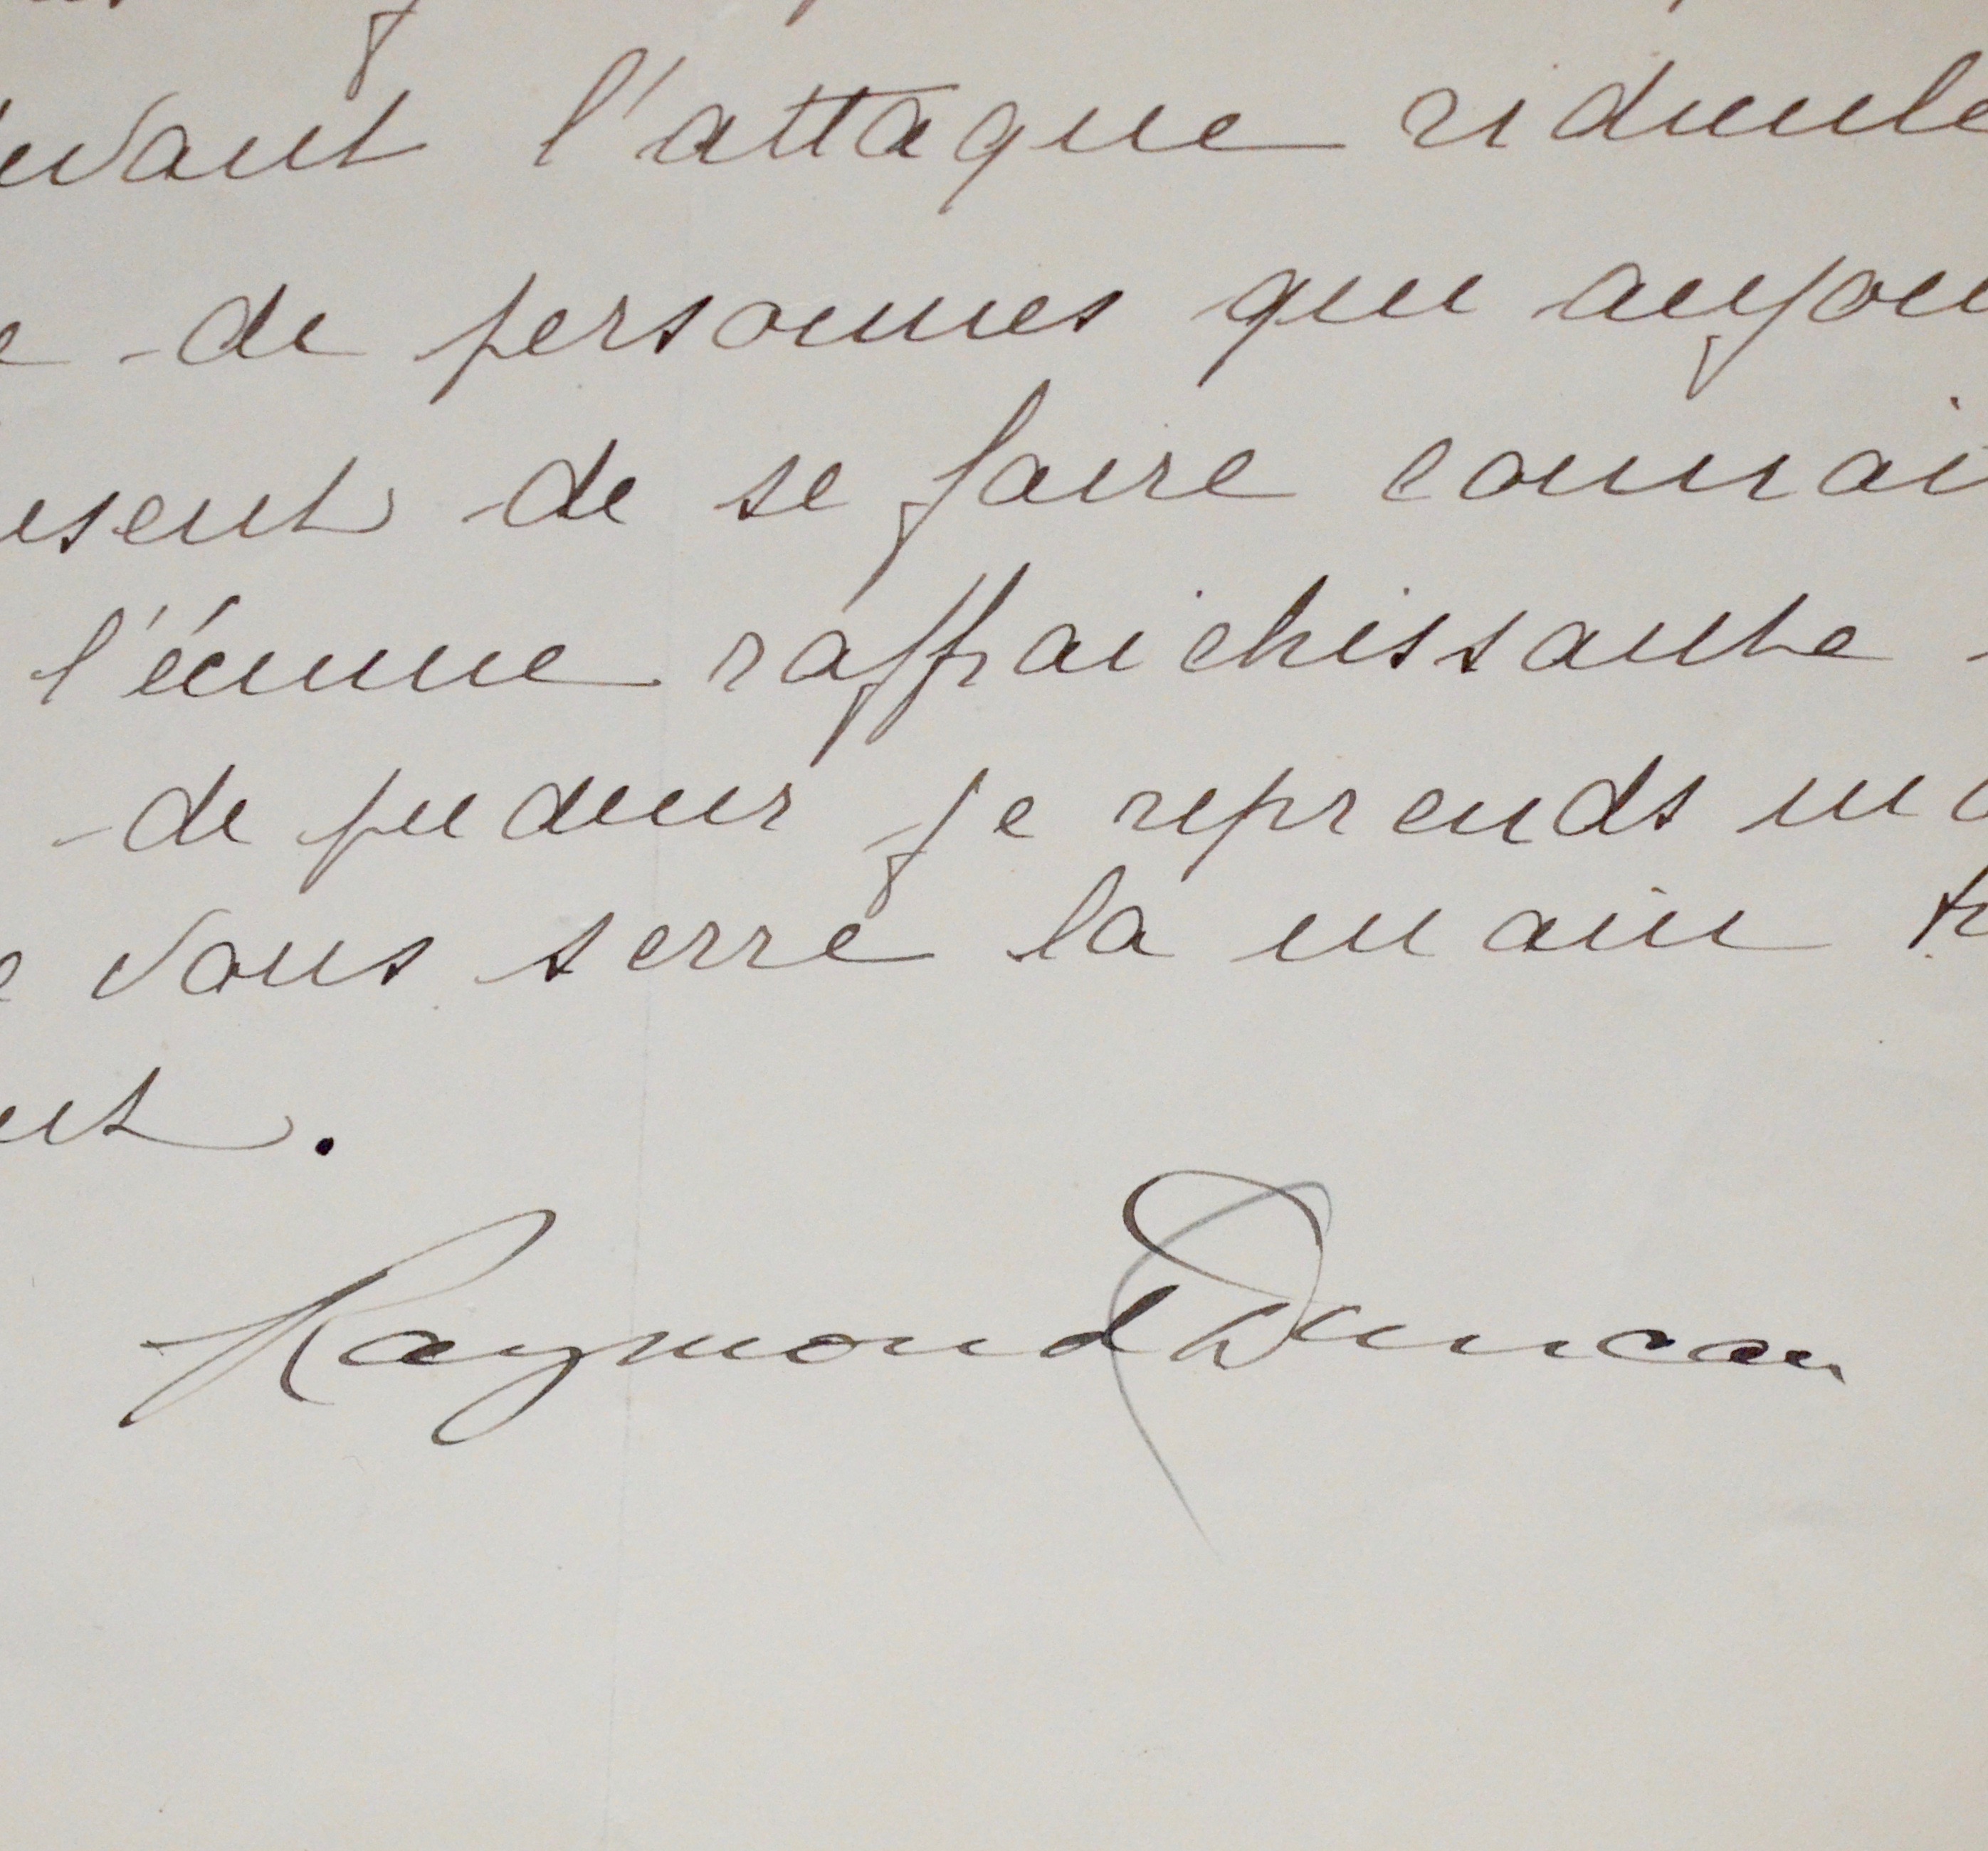 devant l'attaque ridicule
de personnes qui aujou
usent de se faire connai
l'écume raffraichissante
de pudeur je reprends m
vous serre la main
Raymond Duncan